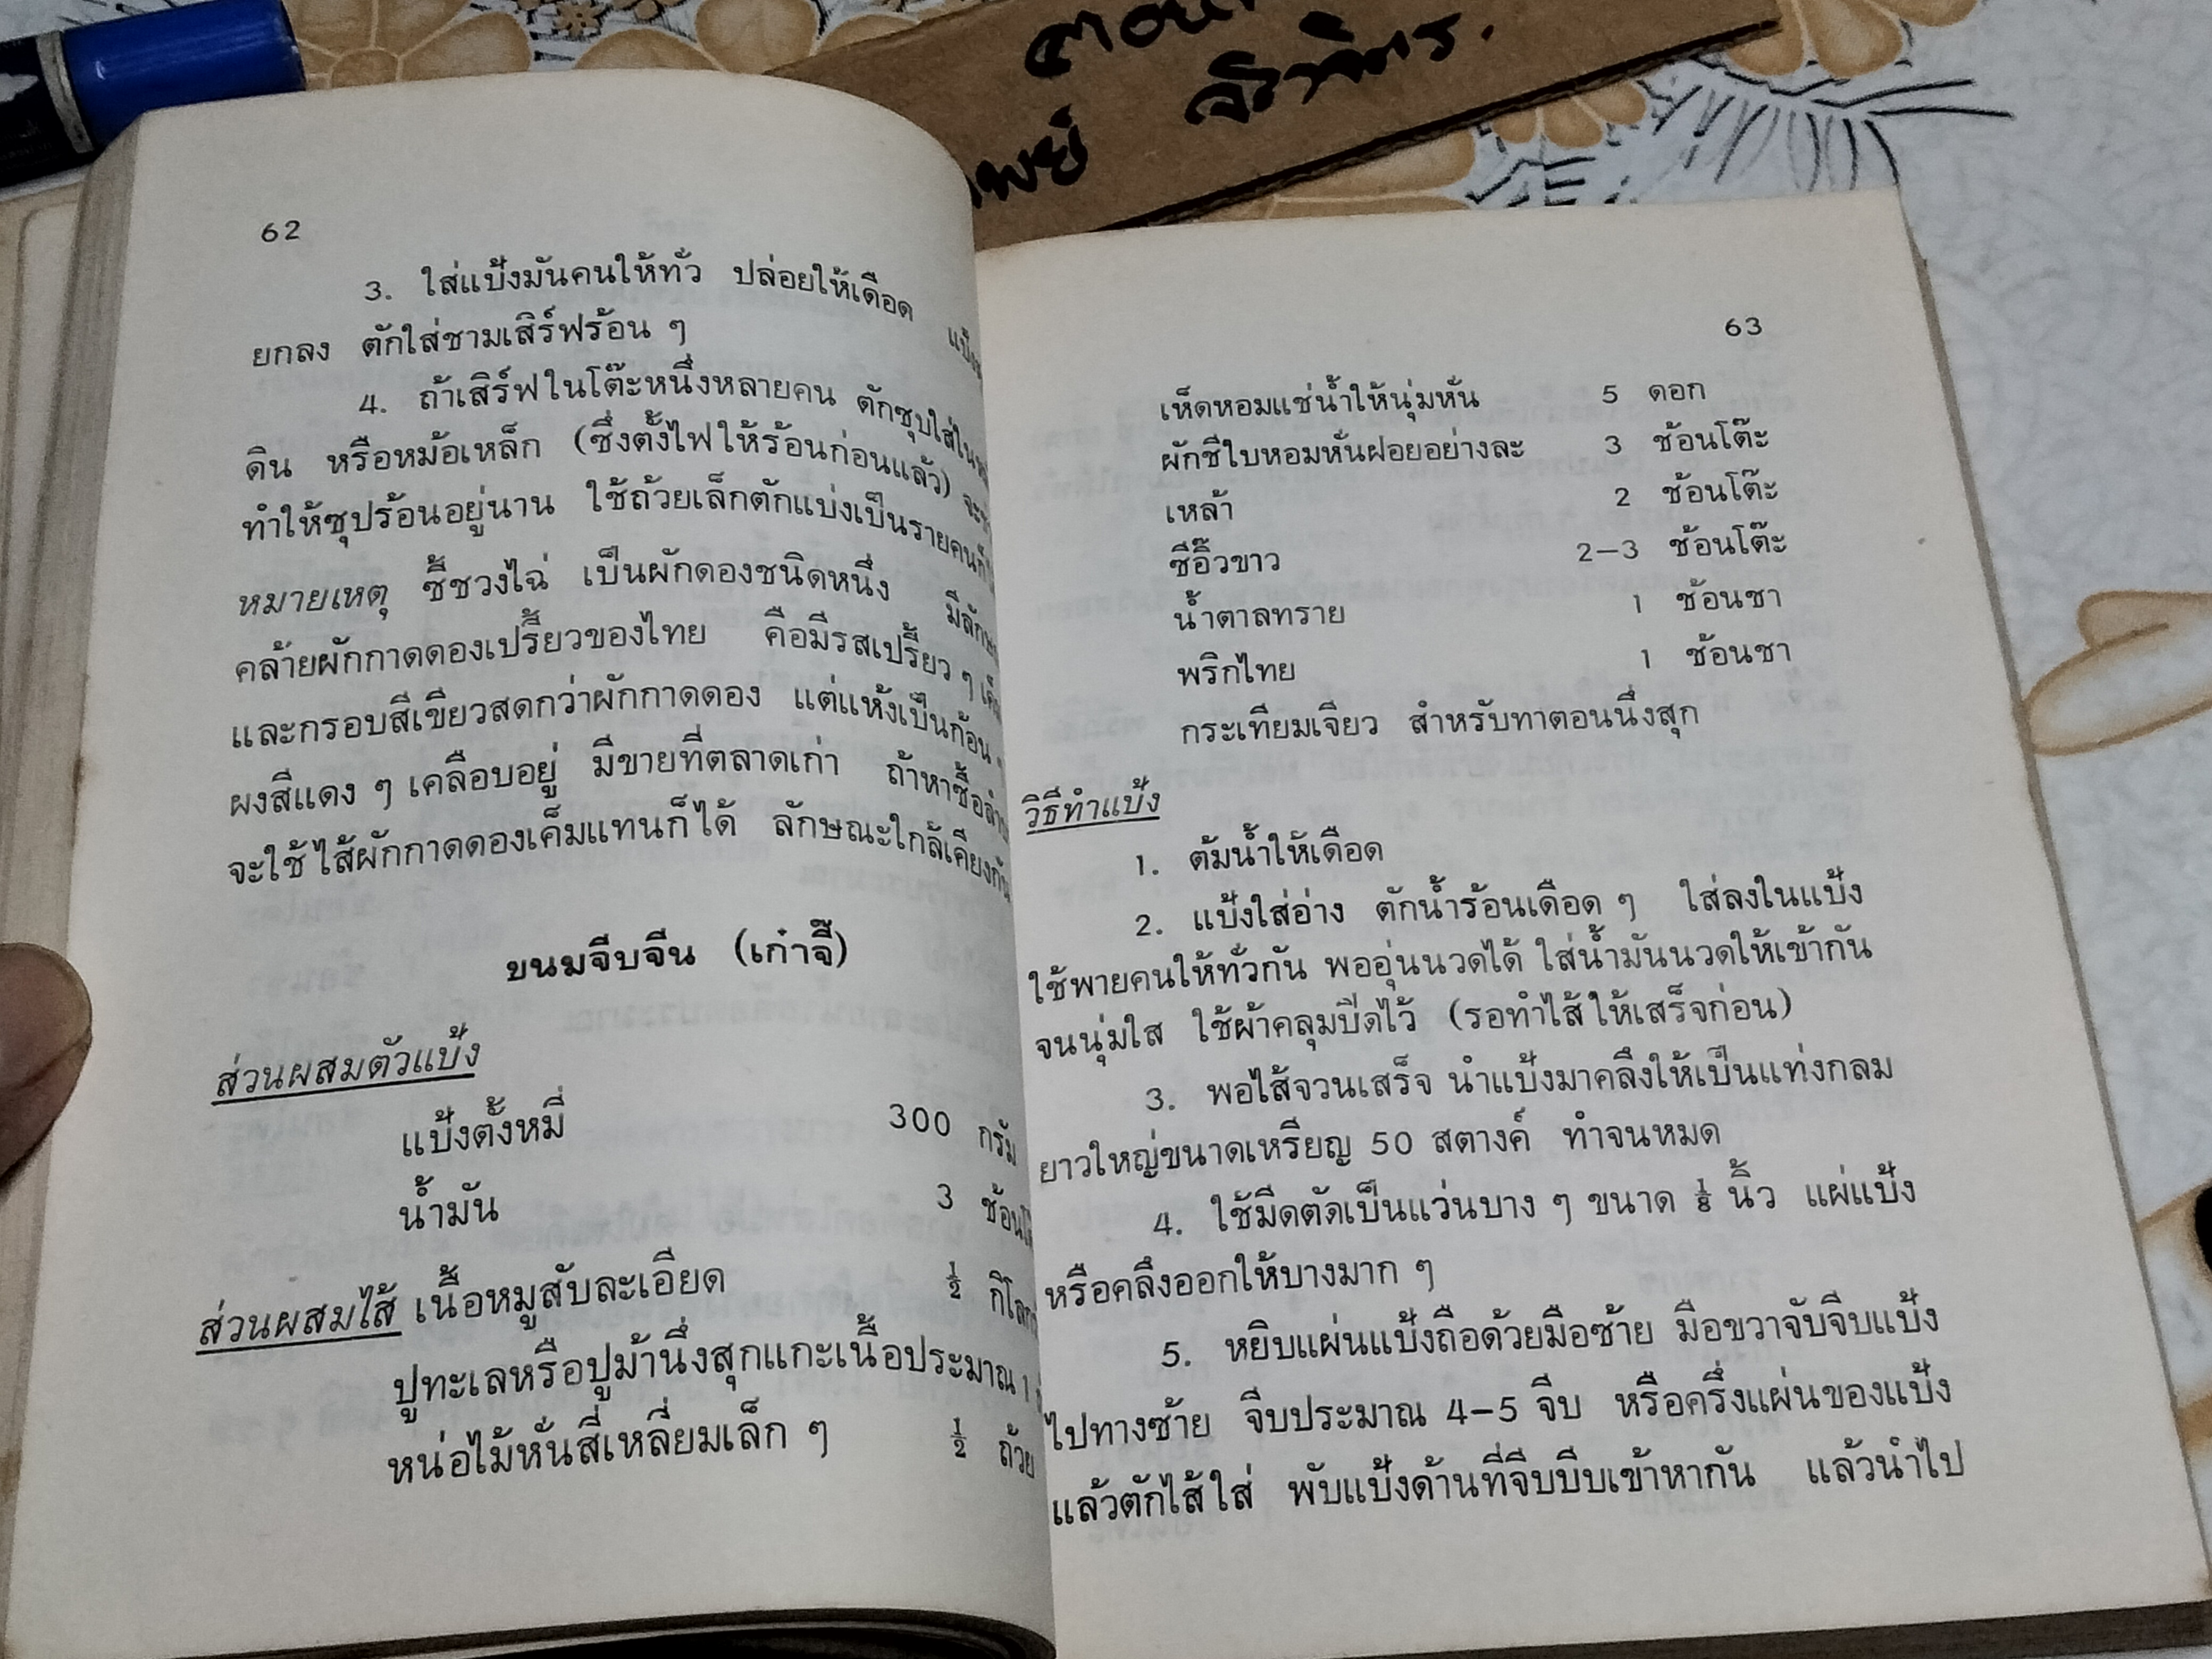 ทิพย์ จิ
62
3. ใส่แป้งมันคนให้ทั่ว ปล่อยให้เดือด
ยกลง ตักใส่ชามเสิร์ฟร้อน ๆ
4. ถ้าเสิร์ฟในโต๊ะหนึ่งหลายคน ตักซุปใส่ใน
ดิน หรือหม้อเหล็ก (ซึ่งตั้งไฟให้ร้อนก่อนแล้ว) จะ
ทำให้ซุปร้อนอยู่นาน ใช้ถ้วยเล็กตักแบ่งเป็นรายคน
หมายเหตุ ซี้ชวงไฉ่ เป็นผักดองชนิดหนึ่ง มี
คล้ายผักกาดดองเปรี้ยวของไทย คือมีรสเปรี้ยว ๆ
และกรอบสีเขียวสดกว่าผักกาดดอง แต่แห้งเป็นก้อน
ผงสีแดง ๆ เคลือบอยู่ มีขายที่ตลาดเก่า ถ้าหาซื้อ
จะใช้ ไส้ผักกาดดองเค็มแทนก็ได้ ลักษณะใกล้เคียงกัน
ขนมจีบจีน (เก๋าจี๊)
ส่วนผสมตัวแป้ง
แป้งตั้งหมี่ 300 กรัม
น้ำมัน 3
ส่วนผสมไส้ เนื้อหมูสับละเอียด ½
ปูทะเลหรือปูม้านึ่งสุกแกะเนื้อประมาณ 1
หน่อไม้หั่นสี่เหลี่ยมเล็ก ๆ ½ ถ้วย
63
เห็ดหอมแช่น้ำให้นุ่มหั่น 5 ดอก
ผักชีใบหอมหั่นฝอยอย่างละ 3 ช้อนโต๊ะ
เหล้า 2 ช้อนโต๊ะ
ซีอิ๊วขาว 2–3 ช้อนโต๊ะ
น้ำตาลทราย 1 ช้อนชา
พริกไทย 1 ช้อนชา
กระเทียมเจียว สำหรับทาตอนนึ่งสุก
วิธีทำแป้ง
1. ต้มน้ำให้เดือด
2. แป้งใส่อ่าง ตักน้ำร้อนเดือด ๆ ใส่ลงในแป้ง
ใช้พายคนให้ทั่วกัน พออุ่นนวดได้ ใส่น้ำมันนวดให้เข้ากัน
จนนุ่มใส ใช้ผ้าคลุมปิดไว้ (รอทำไส้ให้เสร็จก่อน)
3. พอไส้จวนเสร็จ นำแป้งมาคลึงให้เป็นแท่งกลม
ยาวใหญ่ขนาดเหรียญ 50 สตางค์ ทำจนหมด
4. ใช้มีดตัดเป็นแว่นบาง ๆ ขนาด ⅛ นิ้ว แผ่แป้ง
หรือคลึงออกให้บางมาก ๆ
5. หยิบแผ่นแป้งถือด้วยมือซ้าย มือขวาจับจีบแป้ง
ไปทางซ้าย จีบประมาณ 4–5 จีบ หรือครึ่งแผ่นของแป้ง
แล้วตักไส้ใส่ พับแป้งด้านที่จีบบีบเข้าหากัน แล้วนำไป